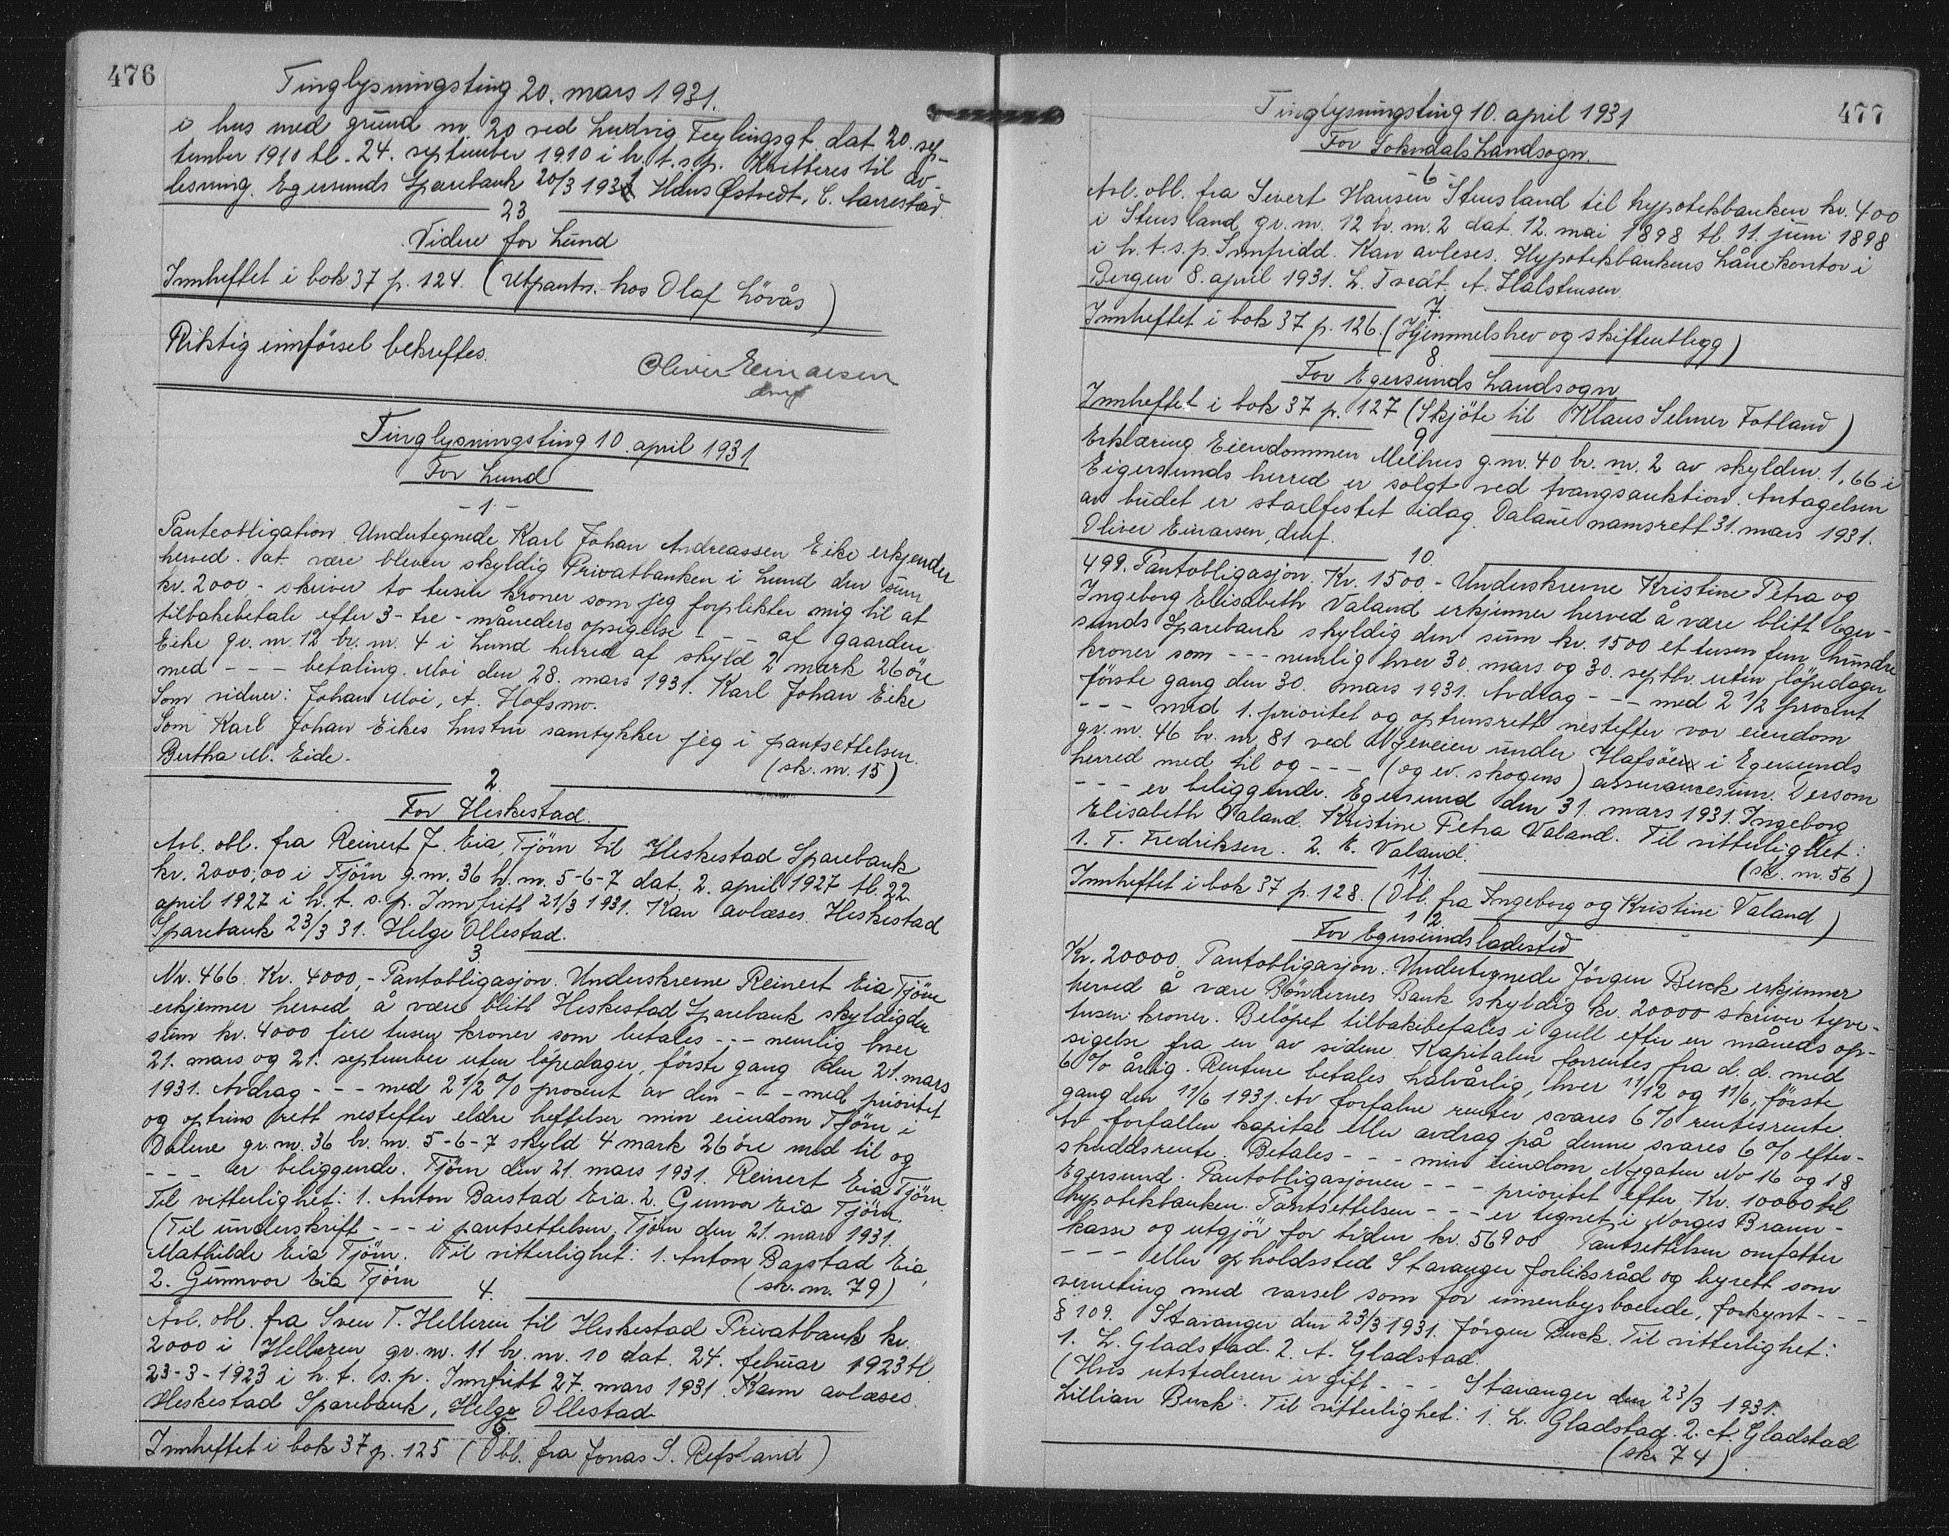 476
Tinglysningsting 20. mars 1931.
i hus med grund nr. 20 ved Ludvig Feylingsgt. dat. 20. sep-
tember 1910 tl. 24. september 1910 i h. t. s. p. Kvitteres til av-
lesning. Egersunds Sparebank 20/3 1931 Hans Østvedt, C. Aarrestad.
23
Videre for Lund
Innheftet i bok 37 p. 124. (Utpantn. hos Olaf Lövås)
Riktig innförsel bekreftes.
Oliver Einarsen
Tinglysningsting 10. april 1931
For Lund
- 1 -
Panteobligation. Undertegnede Karl Johan Andreassen Eike erkjender
herved. at være bleven skyldig Privatbanken i Lund den sum
kr. 2000,- skriver to tusen kroner som jeg forplikter mig til at
tilbakebetale efter 3- tre - måneders opsigelse - - - af gaarden
Eike gr. nr. 12 br. nr. 4 i Lund herred af skyld 2 mark 26 öre
med - - - betaling. Moi den 28. mars 1931. Karl Johan Eike
Som vidner: Johan Moi, A. Hofsmo.
Som Karl Johan Eikes hustru samtykker jeg i pantsettelsen.
Bertha M. Eide.
(sk. nr. 15)
2
For Heskestad.
Avl. obl. fra Reinert J. Eia, Tjörn til Heskestad Sparebank
kr. 2000,00 i Tjörn g.nr. 36 b. nr. 5-6-7 dat. 2. april 1927 tl. 22.
april 1927 i h. t. s. p. Innfritt 21/3 1931. Kan avlæses. Heskestad
Sparebank 23/3 31. Helge Ollestad.
3
Nr. 466. Kr. 4000,- Pantobligasjon. Underskrevne Reinert Eia Tjörn
erkjenner herved å være blitt Heskestad Sparebank skyldig den
sum kr. 4000 fire tusen kroner som betales - - - nemlig hver
21. mars og 21. september uten löpedager, förste gang den 21. mars
1931. Avdrag - - - med 2 1/2 % procent av den - - - med prioritet
og optrins rett nestefter eldre heftelser min eiendom Tjörn i
Dalene gr. nr. 36 br. nr. 5-6-7 skyld 4 mark 26 öre med til og
- - - er beliggende. Tjörn den 21. mars 1931. Reinert Eia Tjörn.
Til vitterlighet: 1. Anton Barstad Eia. 2. Gunvor Eia Tjörn.
(Til underskrift - - - i pantsettelsen. Tjörn den 21. mars 1931.
Mathilde Eia Tjörn. Til vitterlighet: 1. Anton Barstad Eia,
2. Gunnvor Eia Tjörn
(sk. nr. 79)
4.
Avl. obl. fra Sven T. Helleren til Heskestad Privatbank kr.
2000 i Helleren gr. nr. 11 br. nr. 10 dat. 24. februar 1923 tl.
23-3-1923 i h. t. s. p. Innfritt 27. mars 1931. Kann avlæses.
Heskestad Sparebank, Helge Ollestad
5
Innheftet i bok 37 p. 125 (Obl. fra Jonas S. Refsland)
477
Tinglysningsting 10. april 1931
For Sokndals Landsogn.
- 6 -
Avl. obl. fra Severt Hansen Stensland til hypotekbanken kr. 400
i Stensland gr. nr. 12 br. nr. 2 dat. 12. mai 1898 tl. 11. juni 1898
i h. t. s. p. Innfridd. Kan avleses. Hypotekbankens Lånekontor i
Bergen 8. april 1931. L. Tvedt. A. Halstensen.
7.
Innheftet i bok 37 p. 126. (Hjemmelsbrev og skifteutlegg)
8
For Egersunds Landsogn
Innheftet i bok 37 p. 127 (Skjöte til Klaus Selmer Fotland)
9
Erklæring Eiendommen Milhus g.nr. 40 br. nr. 2 av skylden. 1,66 i
Eigersunds herred er solgt ved tvangsauktion. Antagelsen
av budet er stadfestet idag. Dalane namsrett 31. mars 1931.
Oliver Einarsen, dmf.
10.
499. Pantobligasjon. Kr. 1500 - Underskrevne Kristine Petra og
Ingeborg Elisabeth Valand erkjenner herved å være blitt Eger-
sunds Sparebank skyldig den sum kr. 1500 et tusen fem hundre
kroner som - - - nemlig hver 30. mars og 30. septbr. uten löpedager
förste gang den 30. mars 1931. Avdrag - - - med 2 1/2 procent
- - - med 1. prioritet og optrinsrett nestefter vor eiendom
gr. nr. 46 br. nr 81 ved Nyeveien under Hafsöen i Egersunds
herred med til og - - - (og ev. skogens) assurancesum. Dersom
- - - er beliggende. Egersund den 31. mars 1931. Ingeborg
Elisabeth Valand. Kristine Petra Valand. Til vitterlighet:
1. T. Fredriksen. 2. E. Valand.
(sk. nr. 56)
11.
Innheftet i bok 37 p. 128. (Obl. fra Ingeborg og Kristine Valand)
12
For Egersunds ladested
Kr. 20000. Pantobligasjon. Undertegnede Jörgen Buck erkjenner
herved å være Böndernes Bank skyldig kr. 20000 skriver tyve-
tusen kroner. Belöpet tilbakebetales i gull efter en måneds op-
sigelse fra en av sidene. Kapitalen forrentes fra d. d. med
6 % årlig. Rentene betales halvårlig, hver 11/12 og 11/6, förste
gang den 11/6 1931. Av forfalne renter svares 6 % rentesrente.
Av forfallen kapital eller avdrag på denne svares 6 % efter-
skuddsrente. Betales - - - min eiendom Nygaten No 16 og 18
Egersund. Pantobligasjonen - - - prioritet efter Kr. 10000 til
Hypotekbanken. Pantsettelsen - - - er tegnet i Norges Brann-
kasse og utgjör for tiden kr. 56900 Pantsettelsen omfatter
- - - eller opholdssted Stavanger forliksråd og byrett som
verneting med varsel som for innenbysboende, forkynt - - -
§ 109. Stavanger den 23/3 1931. Jörgen Buck. Til vitterlighet:
1. L. Gladstad. 2. A. Gladstad.
(Hvis utstederen er gift - - - Stavanger den 23/3 1931.
Lillian Buck. Til vitterlighet: 1. L. Gladstad. 2. A. Gladstad
(sk. 74)